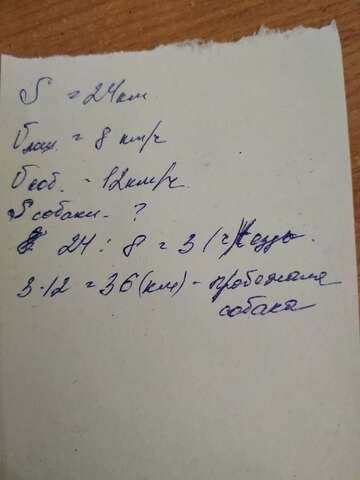 S = 24 км
Vлош. = 8 км/ч
Vсоб. - 12 км/ч.
S собаки - ?
24 : 8 = 3 (ч)
3 · 12 = 36 (км) - пробежала
собака